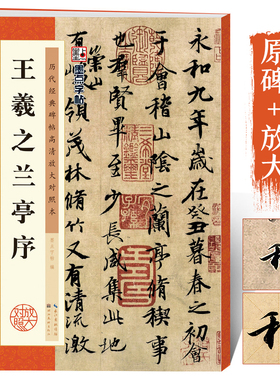 王羲之兰亭序
历代经典碑帖高清放大对照本
墨点字帖
永和九年歲在癸丑暮春之初會
于會稽山陰之蘭亭脩稧事
也羣賢畢至少長咸集此地
有崇山
領茂林脩竹又有
放大
对照
原碑+放大
和
和